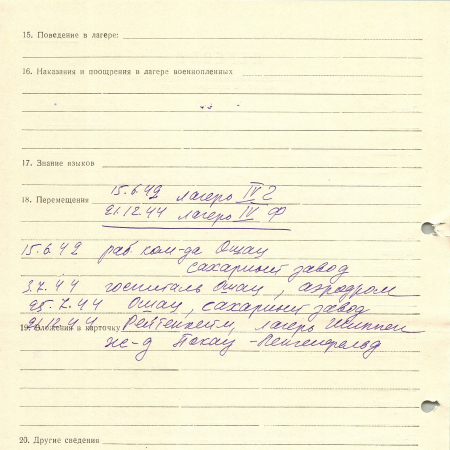 15. Поведение в лагере:
16. Наказания и поощрения в лагере военнопленных
17. Знание языков
18. Перемещения 15.6.42 лагерь IV Г
21.12.44 лагерь IV Ф
15.6.42 раб. ком-да Ошац
сахарный завод
3.7.44 госпиталь Ошац, аэродром
25.7.44 Ошац, сахарный завод
21.12.44 лагерь
19. Вложения в карточку
ж-д
20. Другие сведения